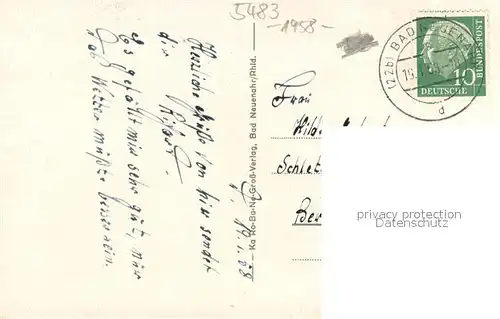 5483
-1958-
(22b) BAD
19.
d
10
DEUTSCHE
BUNDESPOST
Frau
Hilde
Schle
Be
privacy protection
Datenschutz
Ka Ro-Ba-Ne-Groß-Verlag, Bad Neuenahr/Rhld.
Herzliche Grüße von hier sendet
dir
Es gefällt mir sehr gut, nur
das Wetter müßte besser sein.